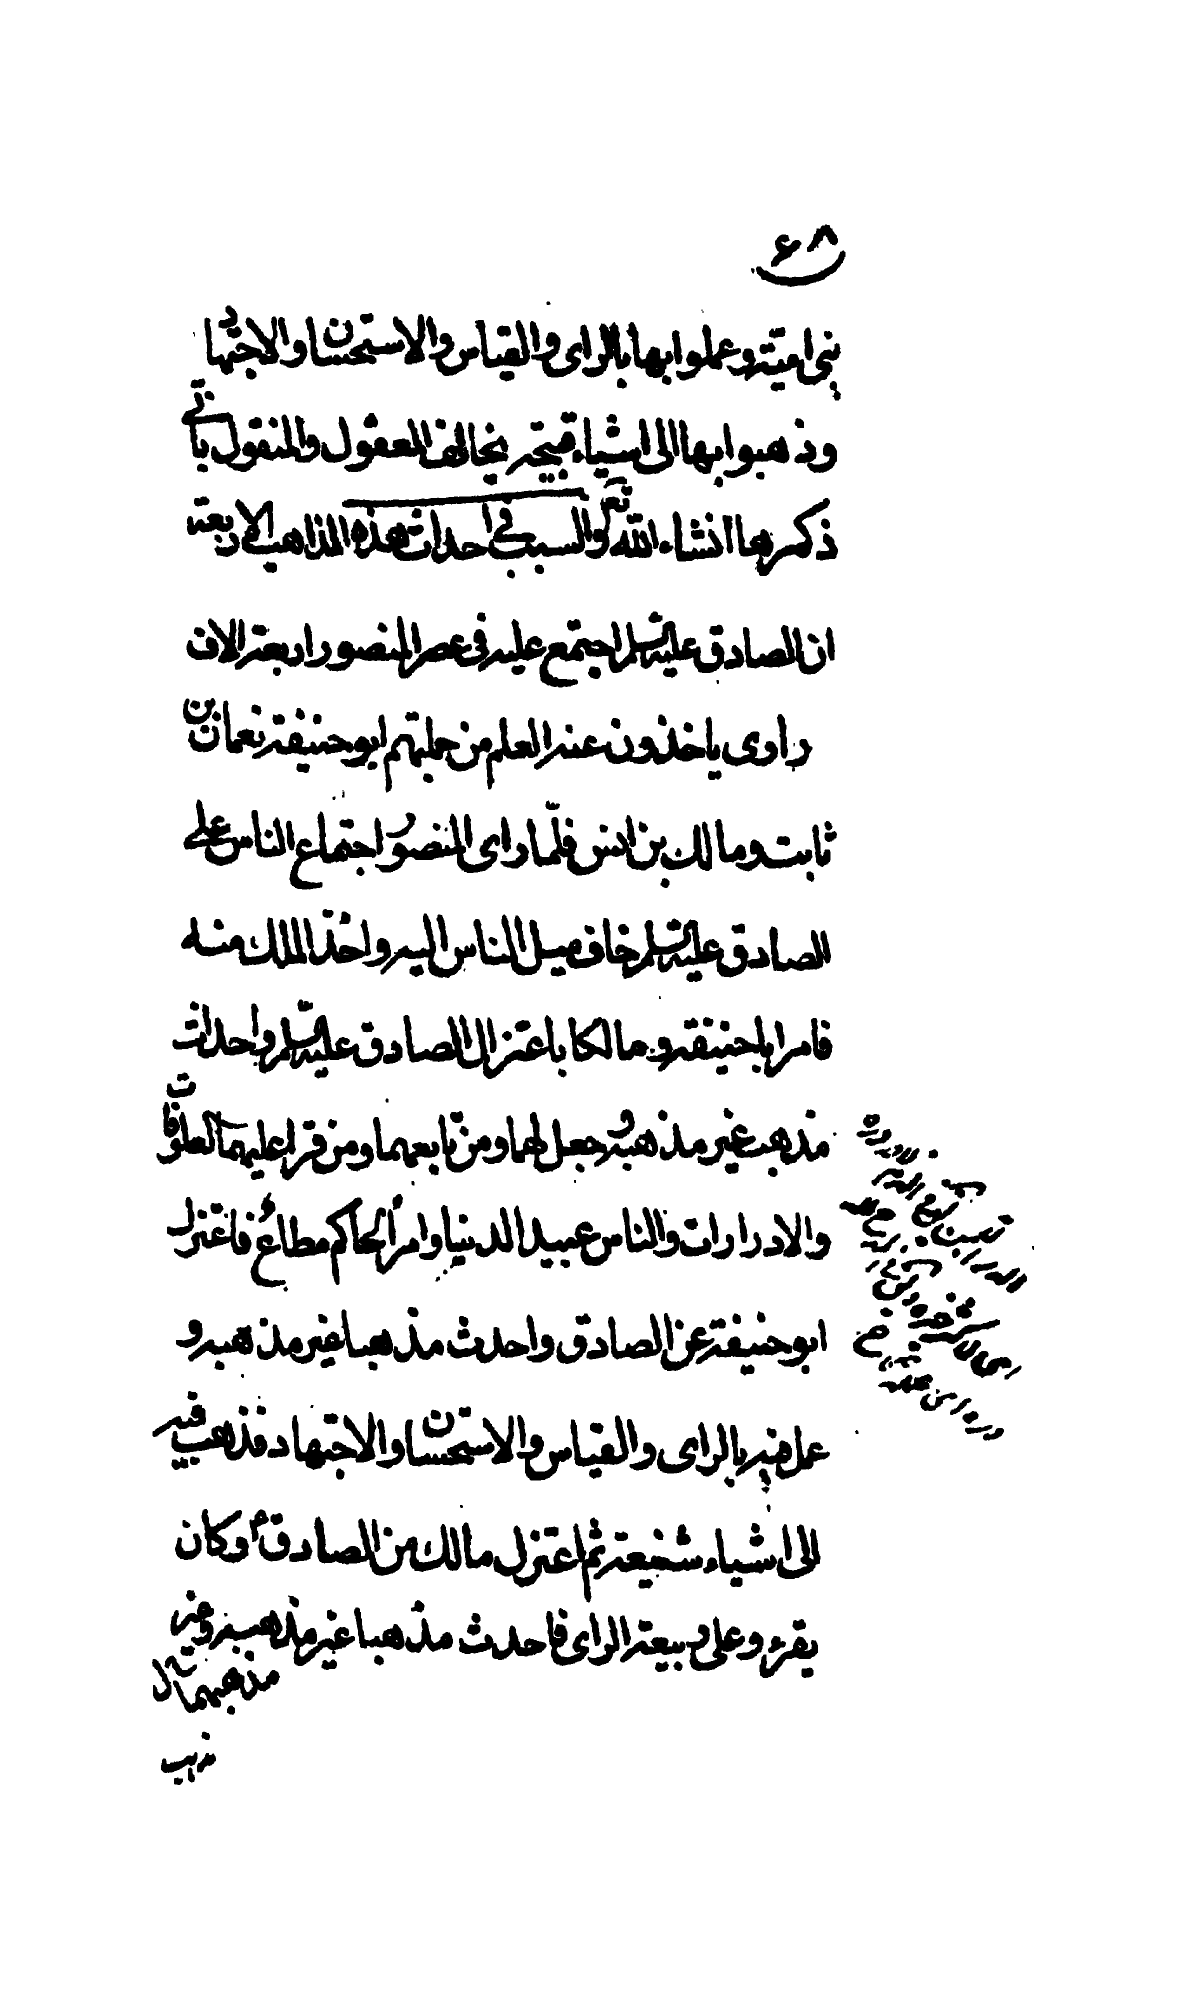 ۶۸
بنی امیته وعملوا بها بالرای والقیاس والاستحسان والاجتهاد
وذهبوا بها الی اشیاء قبیحة یخالف المعقول والمنقول یاتی
ذکرها انشاء الله تعالی والسبب فی احداث هذه المذاهب الاربعة
ان الصادق علیه السلم اجتمع علیه فی عصر المنصور اربعة الاف
راوی یاخذون عنه العلم من جملتهم ابو حنیفة نعمان بن
ثابت ومالک بن انس فلما رای المنصور اجتماع الناس علی
الصادق علیه السلم خاف میل الناس الیه واخذ الملک منه
فامر ابا حنیفة ومالکا باعتزال الصادق علیه السلم واحداث
مذهب غیر مذهبه وجعل لهما ومن تابعهما ومن قرا علیهما العلوفات
والادرارات والناس عبید الدنیا وامر الحاکم مطاع فاعتزل
ابو حنیفة عن الصادق واحدث مذهبا غیر مذهبه و
عمل فیه بالرای والقیاس والاستحسان والاجتهاد فذهب فیه
الی اشیاء شنیعة ثم اعتزل مالک من الصادق م وکان
یقرء وعلی ربیعة الرای فاحدث مذهبا غیر مذهبه وغیر
مذهبهما قال
مذهب